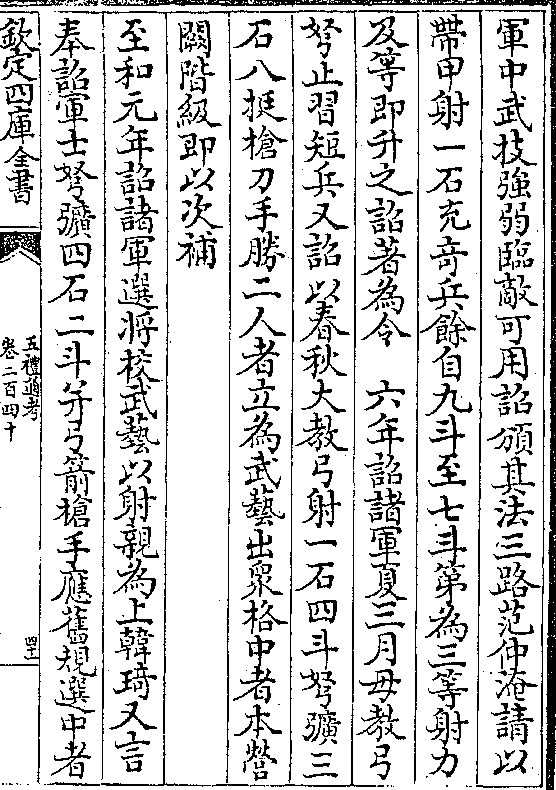 軍中武技強弱臨敵可用詔頒其法三路范仲淹請以
帶甲射一石充竒兵餘自九斗至七斗第為三等射力
及等即升之詔著為令　六年詔諸軍夏三月毋教弓
弩止習短兵又詔以春秋大教弓射一石四斗弩彍三
石八挺槍刀手勝二人者立為武藝出衆格中者本營
闕階級即以次補
至和元年詔諸軍選將校武藝以射親為上韓琦又言
奉詔軍士弩彍四石二斗并弓箭槍手應舊規選中者
欽定四庫全書
五禮通考
卷二百四十
四十一